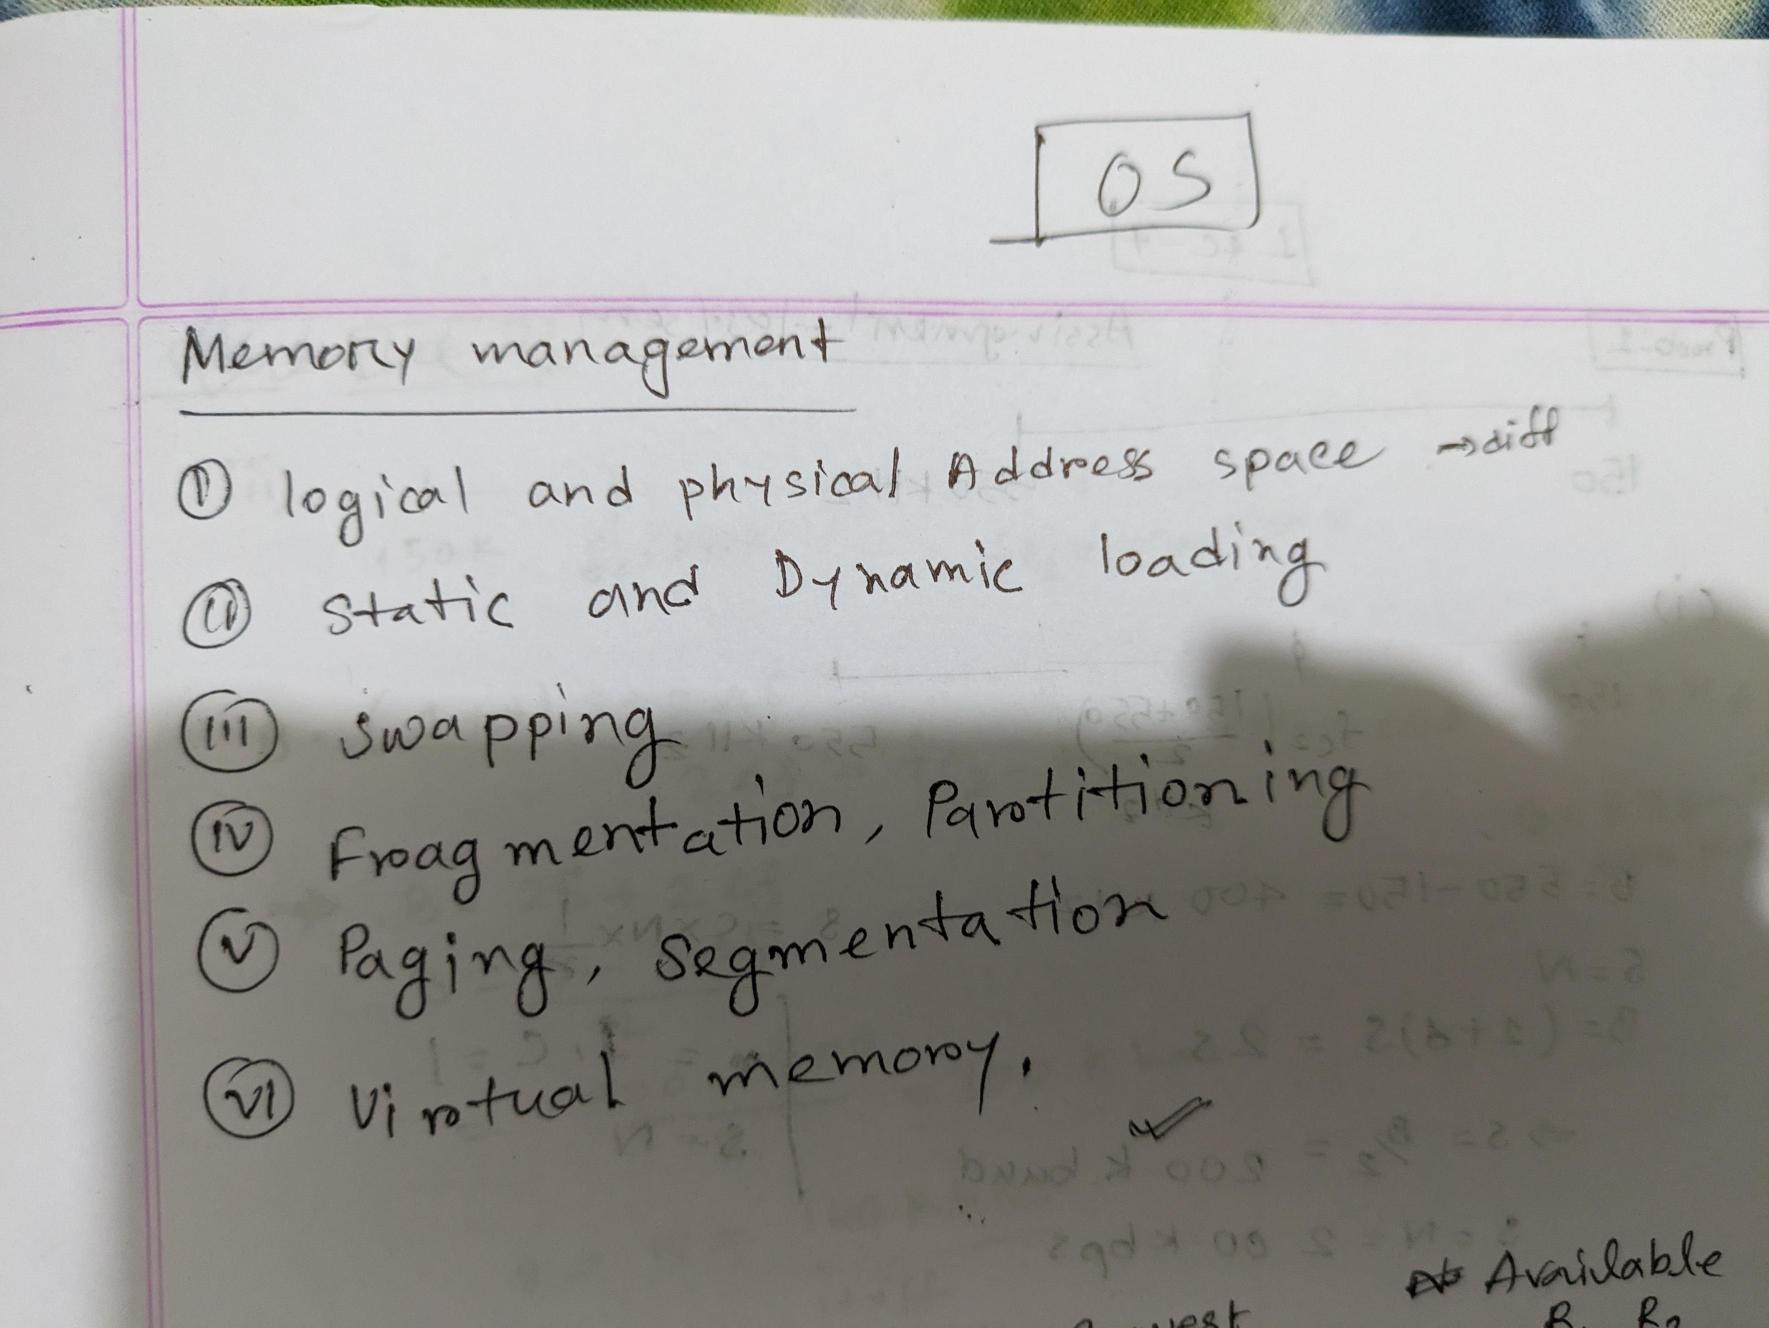 OS
Memory management
(i) logical and physical Address space → diff
(ii) Static and Dynamic loading
(iii) swapping
(iv) Fragmentation, Partitioning
(v) Paging, Segmentation
(vi) Virtual memory.
Available